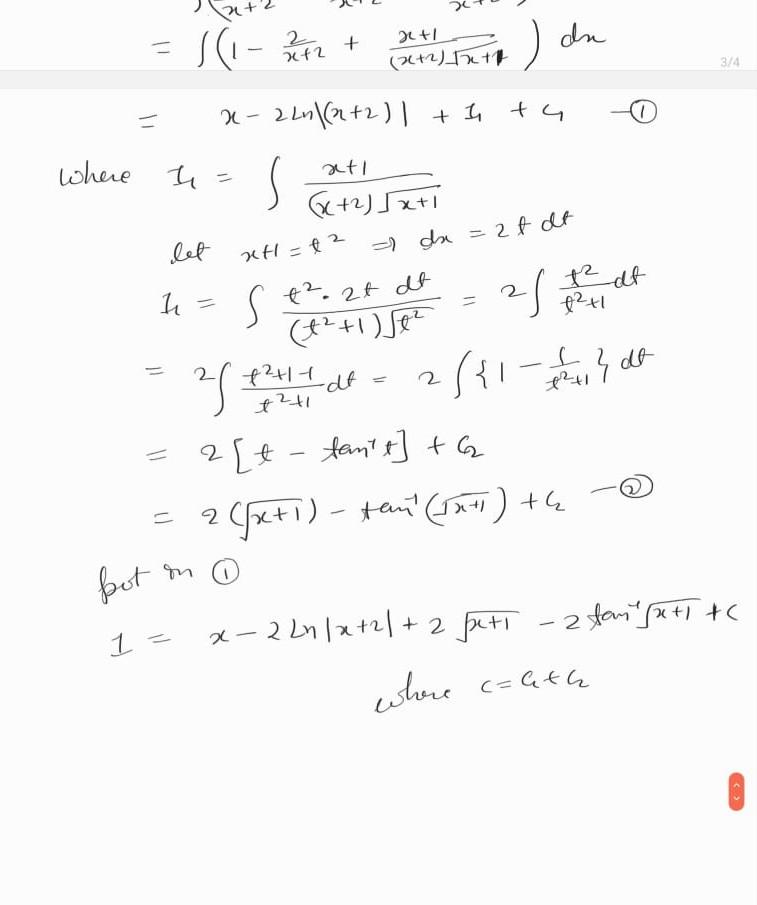 = ∫(1 - 2/(x+2) + (x+1)/((x+2)√(x+1))) dx
3/4
= x - 2 Ln|(x+2)| + I₁ + C₁ —①
where I₁ = ∫ (x+1)/((x+2)√(x+1))
let x+1 = t² ⇒ dx = 2t dt
I₁ = ∫ (t². 2t dt)/((t²+1)√t²) = 2∫ t²/(t²+1) dt
= 2∫ (t²+1-1)/(t²+1) dt = 2∫{1 - 1/(t²+1)} dt
= 2[t - tan⁻¹t] + C₂
= 2(√(x+1)) - tan⁻¹(√(x+1)) + C₂ —②
put in ①
I = x - 2 Ln|x+2| + 2√(x+1) - 2 tan⁻¹√(x+1) + C
where C = C₁+C₂